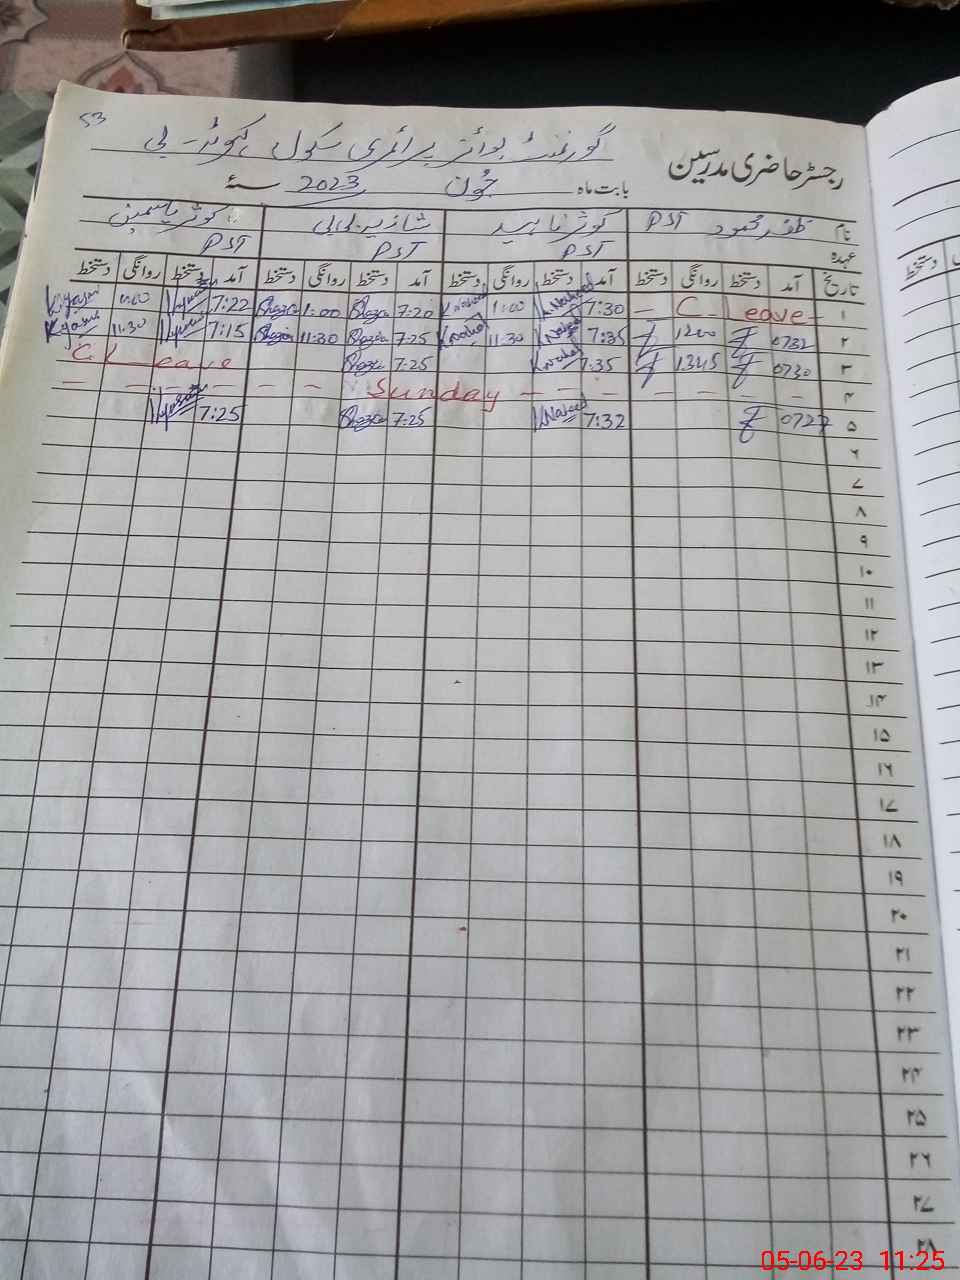 53
گورنمنٹ بوائز پرائمری سکول
رجسٹر حاضری مدرسین
بابت ماہ جُون 2023 سنہ
نام ظفر محمود PST کوثر ناہید شازیہ بی بی کوثر یاسمین
عہدہ PST PST PST
تاریخ آمد دستخط روانگی دستخط آمد دستخط روانگی دستخط آمد دستخط روانگی دستخط آمد دستخط روانگی دستخط
۱ — C - Leave - 7:30 K.Naheed 1:00 K.Naheed 7:20 Shazia 1:00 Shazia 7:22 K.Yasmin 1:00 K.Yasmin
۲ 0732 1200 7:35 K.Naheed 11:30 K.Naheed 7:25 Shazia 11:30 Shazia 7:15 K.Yasmin 11:30 K.Yasmin
۳ 0730 1345 7:35 K.Naheed 7:25 Shazia C Leave
۴ — — — — — — Sunday — — — — — —
۵ 0727 7:32 K.Naheed 7:25 Shazia 7:25 K.Yasmin
۶
۷
۸
۹
۱۰
۱۱
۱۲
۱۳
۱۴
۱۵
۱۶
۱۷
۱۸
۱۹
۲۰
۲۱
۲۲
۲۳
۲۴
۲۵
۲۶
۲۷
۲۸
دستخط
05-06-23 11:25